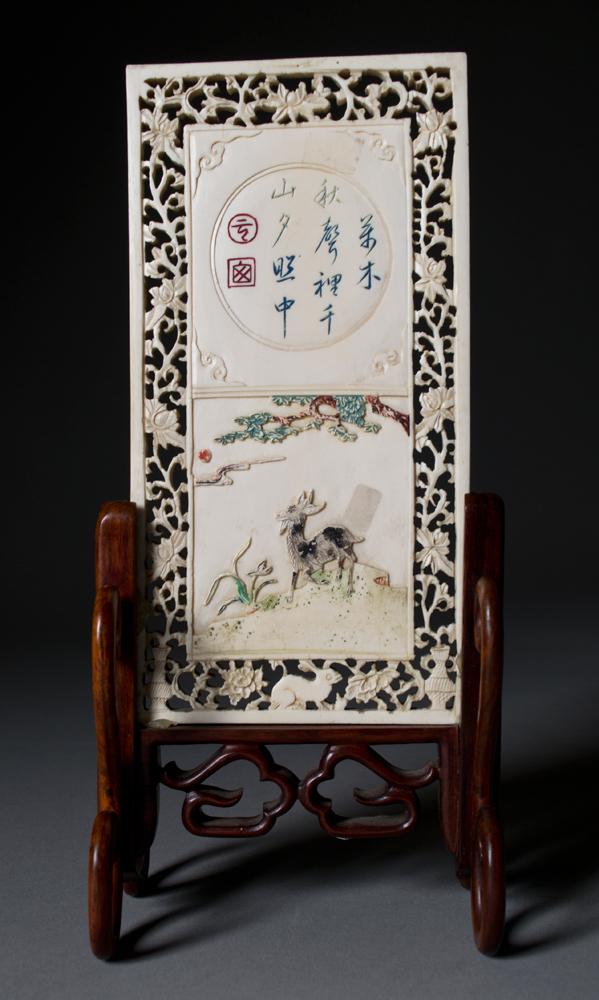 萬木
秋聲裡千
山夕照中